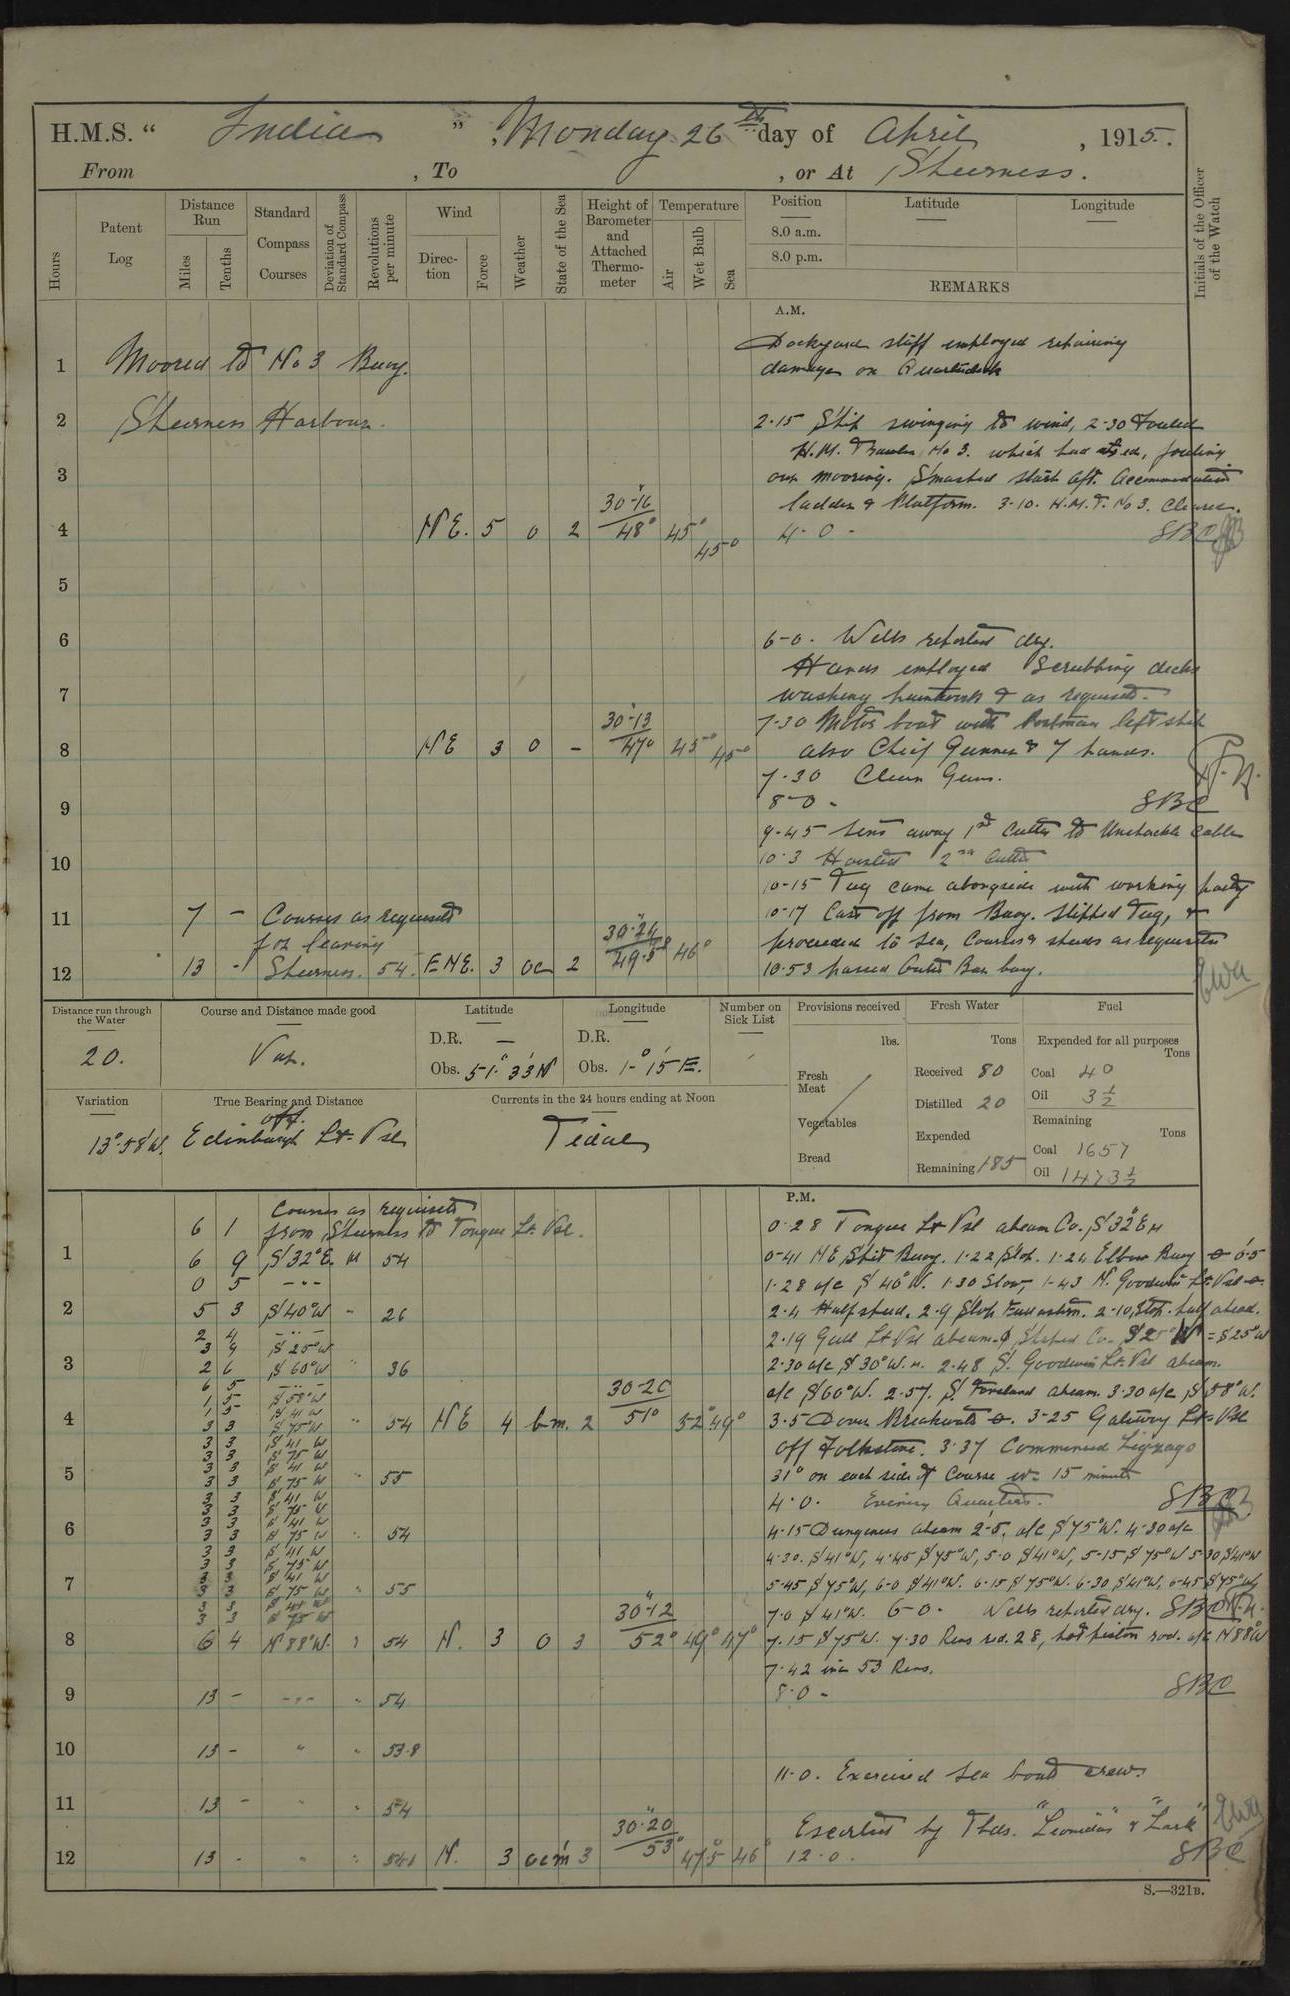 H.M.S. “ India ” , Monday 26th day of April , 1915.
From , To , or At Sheerness.
Hours
Patent Log
Distance Run
Miles
Tenths
Standard Compass Courses
Deviation of Standard Compass
Revolutions per minute
Wind
Direction
Force
Weather
State of the Sea
Height of Barometer and Attached Thermometer
Temperature
Air
Wet Bulb
Sea
Position
Latitude
Longitude
8.0 a.m.
8.0 p.m.
REMARKS
Initials of the Officer of the Watch
A.M.
Dockyard staff employed repairing
1 Moored to No 3 Buoy. damages on Quarterdeck
2 Sheerness Harbour. 2.15 Ship swinging to wind, 2-30 Fouled
H.M. Trawler No 3. which had, fouling
3 our mooring. Smashed starb aft. accommodation
ladder & Platform. 3-10. H.M.T. No 3. Cleared.
4 NE. 5 o 2 30.16 48° 45° 45° 4-0 - SBC
5
6 6-0. Wells reported dry.
Hands employed Scrubbing decks
7 washing paintwork & as requisite.
7-30 Motor boat with Postman left ship
8 NE 3 o - 30.13 47° 45° 45° also Chief Gunner & 7 hands.
7.30 Clean Guns.
9 8-0 - SBC
9-45 Sent away 1st Cutter to Unshackle Cable
10 10.3 Hoisted 2nd Cutter
10-15 Tug came alongside with working party
11 7 - Courses as requisite 10-17 Cast off from Buoy. Slipped Tug, &
for leaving proceeded to Sea, Courses & speeds as requisite
12 13 - Sheerness. 54. ENE. 3 oc 2 30.24 49.5 48 46° 10.53 passed Outer Bar buoy.
Distance run through the Water
20.
Course and Distance made good
Var.
Latitude
D.R. —
Obs. 51° 33' N
Longitude
D.R.
Obs. 1° 15' E.
Number on Sick List
Variation
13°.58' W.
True Bearing and Distance
off.
Edinburgh Lt. Vsl
Currents in the 24 hours ending at Noon
Tidal
Provisions received
lbs.
Fresh Meat
Vegetables
Bread
Fresh Water
Tons
Received 80
Distilled 20
Expended
Remaining 185
Fuel
Expended for all purposes
Tons
Coal 40
Oil 3½
Remaining
Tons
Coal 1657
Oil 1473½
P.M.
Courses as requisite
6 1 from Sheerness to Tongue Lt. Vsl. 0.28 Tongue Lt Vsl abeam Co. S32°E M
1 6 9 S32°E. M 54 0-41 NE Spit Buoy. 1.22 Stop. 1.24 Elbow Buoy 0.5
0 5 - " - 1.28 a/c S 40°W. 1.30 Slow, 1-43 N. Goodwin Lt Vsl
2 5 3 S40°W " 26 2.4 Half speed, 2.9 Stop Full astern. 2-10, Stop. half ahead.
2 4 - " - 2.19 Gull Lt Vsl abeam. & Shaped Co. S25°W
3 9 S25°W
3 2 6 S60°W " 36 2.30 a/c S30°W. M. 2.48 S. Goodwin Lt. Vsl abeam.
6 5 - " - a/c S60°W. 2.57. S. Foreland abeam. 3.30 a/c S58°W.
1 5 S58°W
1 5 S41W
4 3 3 S75W " 54 NE 4 bm. 2 30.20 51° 52° 49° 3.5 Dover Breakwater. 3-25 Gateway Lt Vsl
3 3 S41W off Folkstone. 3.37 Commenced Zigzags
3 3 S75W
3 3 S41W
5 3 3 S75W " 55 31° on each side of Course ev. 15 minutes
3 3 S41W 4.0. Evening Quarters. SBC
3 3 S75W
3 3 S41W
6 3 3 S75W " 54 4.15 Dungeness abeam 2.5, a/c S75°W. 4.30 a/c
3 3 S41W 4.30. S41°W, 4.45 S75°W, 5.0 S41°W, 5-15 S75°W 5.30 S41°W
3 3 S75W
3 3 S41W
7 3 3 S75W " 55 5.45 S75°W, 6-0 S41°W. 6.15 S75°W. 6.30 S41°W, 6-45 S75°W,
3 3 S41W 7.0 S41°W. 6-0. Wells reported dry. SBC
3 3 S75W
8 6 4 N88°W. " 54 N. 3 o 3 30.12 52° 49° 47° 7.15 S75°W. 7.30 Revs red. 28, hot piston rod. a/c N88°W
7.42 inc 53 Revs.
9 13 - - " - " 54 8.0 - SBC
10 13 - " " 53.8
11.0. Exercised sea boat crews.
11 13 - " " 54
Escorted by Tbds. "Leonidas" & "Lark"
12 13 - " " N. 3 ocm 3 30.20 53° 47.5 46° 12.0. SBC
S.—321B.